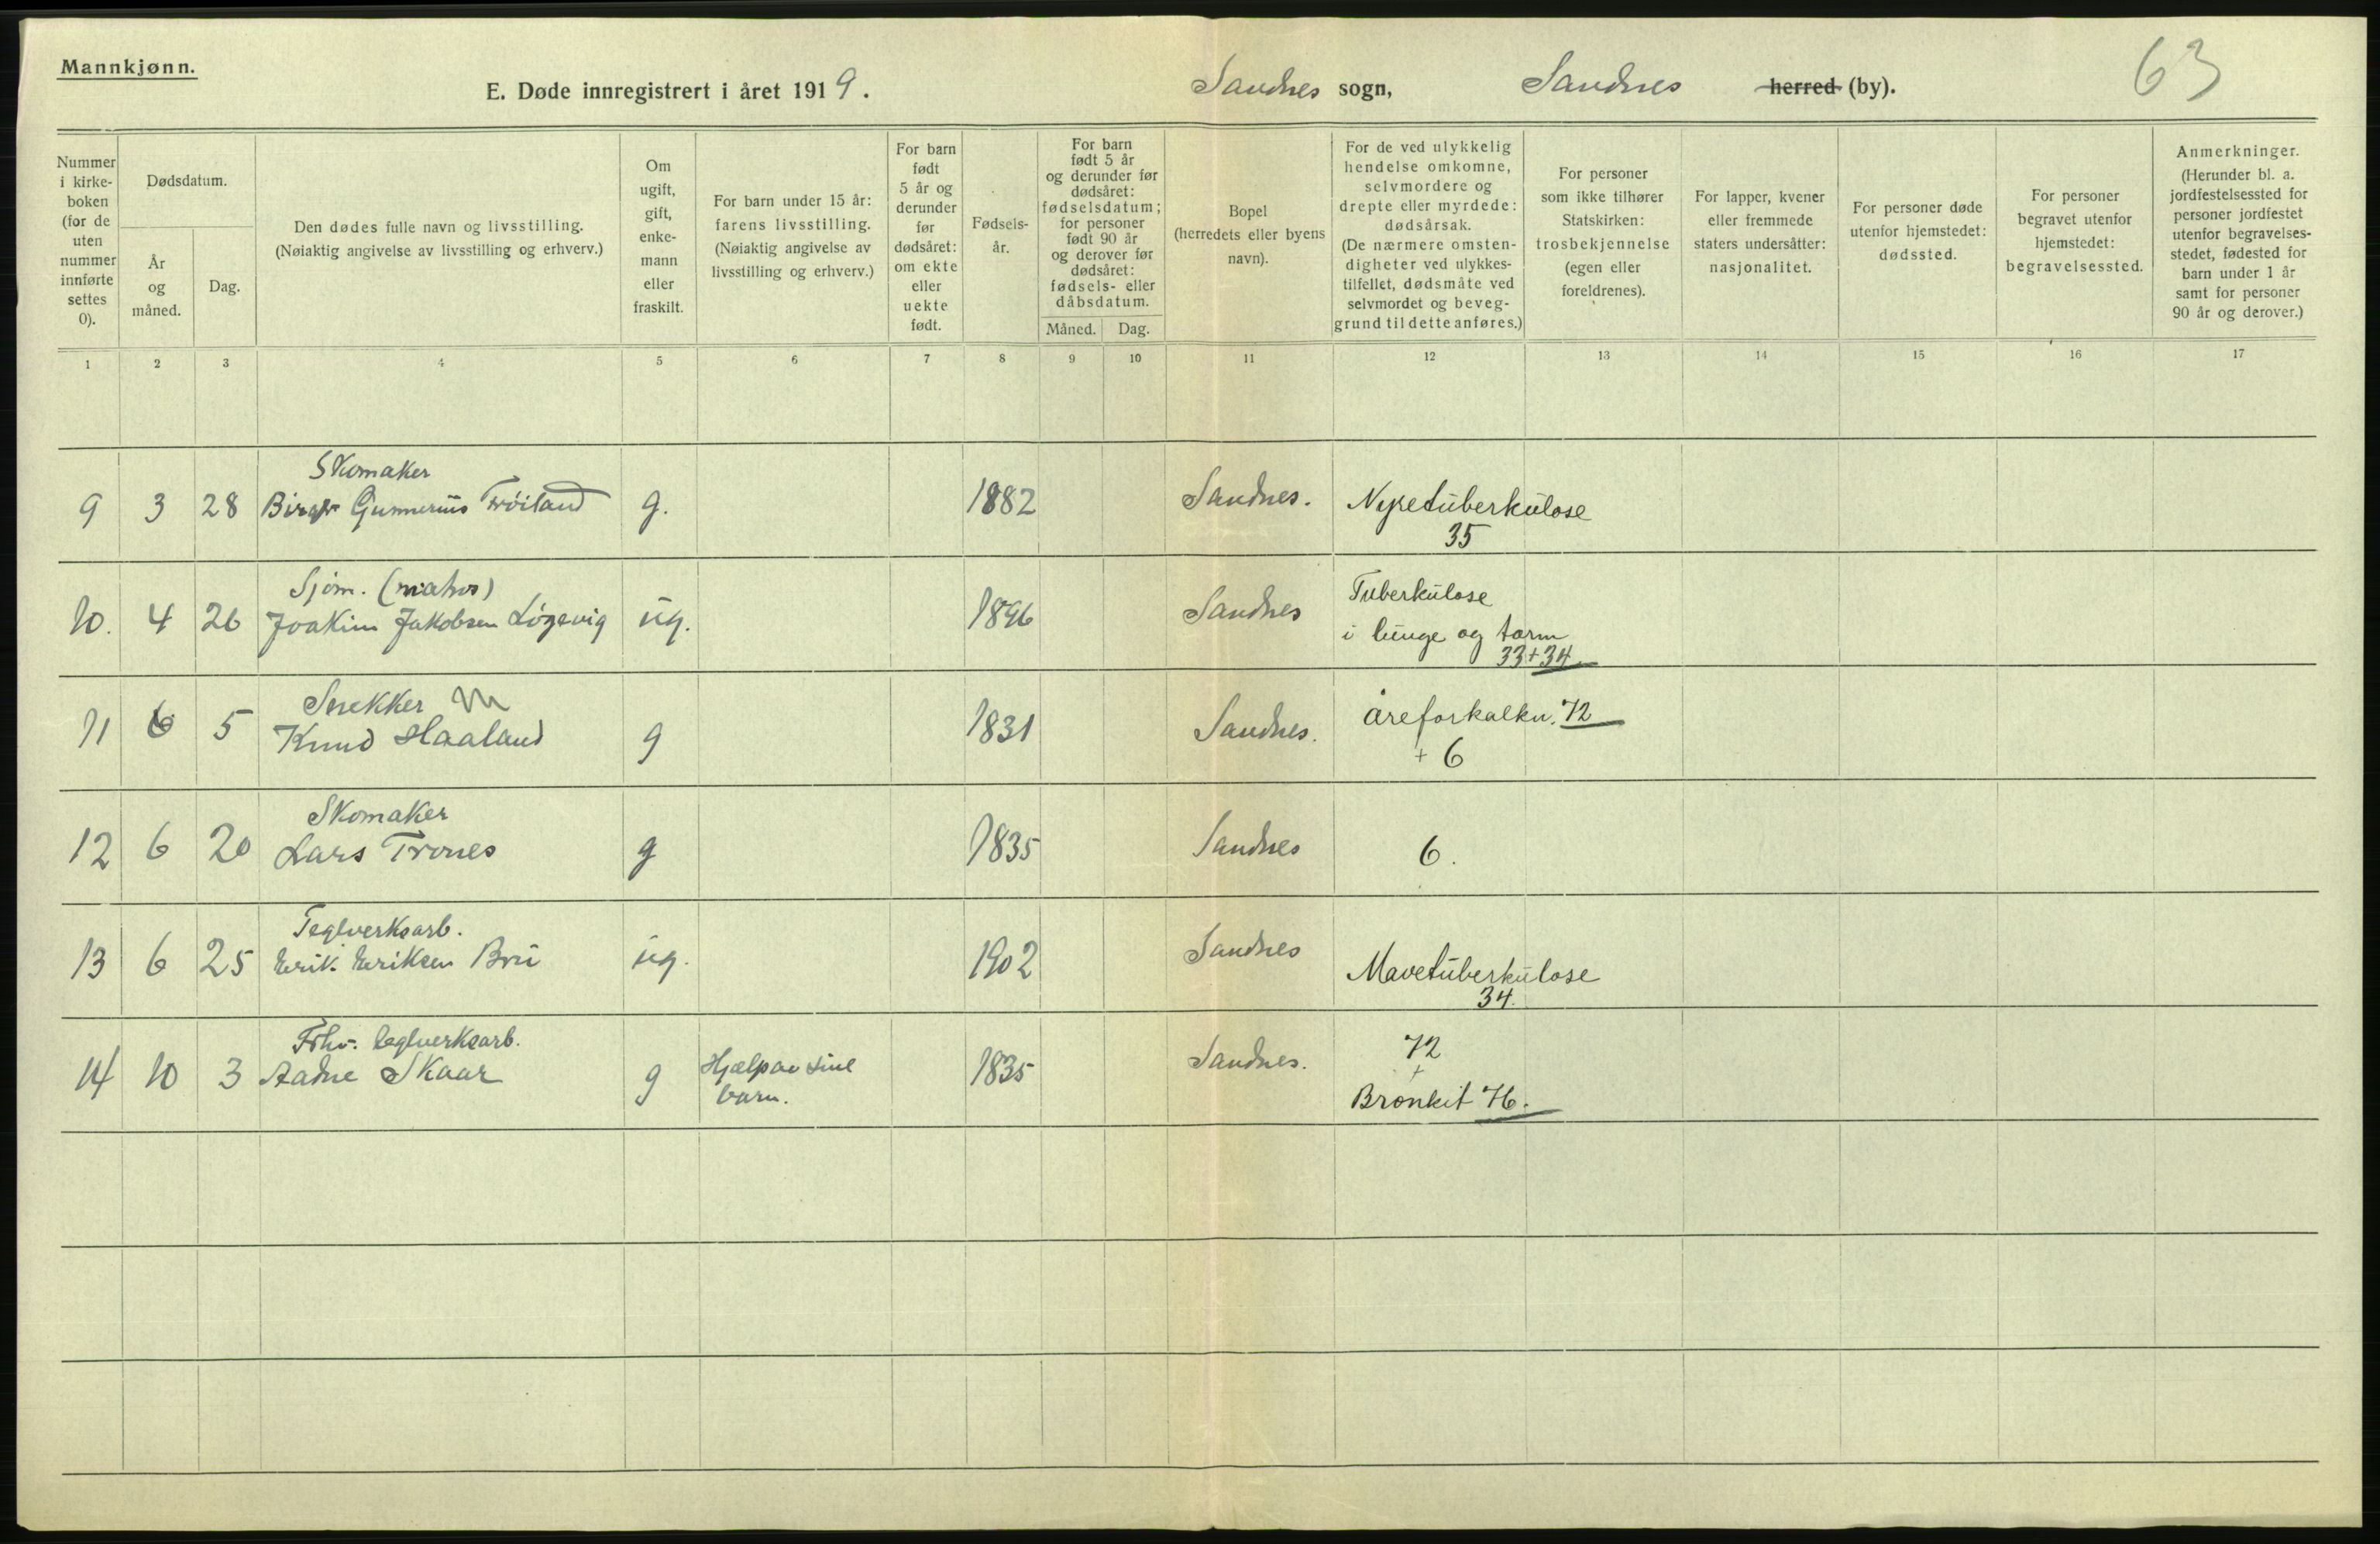 Mannkjønn.
E. Døde innregistrert i året 1919.
Sandnes sogn, Sandnes herred (by).
63
Nummer i kirke-boken (for de uten nummer innførte settes 0).
Dødsdatum.
År og måned.
Dag.
Den dødes fulle navn og livsstilling.
(Nøiaktig angivelse av livsstilling og erhverv.)
Om ugift, gift, enke-mann eller fraskilt.
For barn under 15 år:
farens livsstilling.
(Nøiaktig angivelse av
livsstilling og erhverv.)
For barn født 5 år og derunder før dødsåret: om ekte eller uekte født.
Fødsels-år.
For barn
født 5 år
og derunder før
dødsåret:
fødselsdatum;
for personer
født 90 år
og derover før
dødsåret:
fødsels- eller
dåbsdatum.
Måned. Dag.
Bopel
(herredets eller byens
navn).
For de ved ulykkelig
hendelse omkomne,
selvmordere og
drepte eller myrdede:
dødsårsak.
(De nærmere omsten-
digheter ved ulykkes-
tilfellet, dødsmåte ved
selvmordet og beveg-
grund til dette anføres.)
For personer
som ikke tilhører
Statskirken:
trosbekjennelse
(egen eller
foreldrenes).
For lapper, kvener
eller fremmede
staters undersåtter:
nasjonalitet.
For personer døde
utenfor hjemstedet:
dødssted.
For personer
begravet utenfor
hjemstedet:
begravelsessted.
Anmerkninger.
(Herunder bl. a.
jordfestelsessted for
personer jordfestet
utenfor begravelses-
stedet, fødested for
barn under 1 år
samt for personer
90 år og derover.)
1 2 3 4 5 6 7 8 9 10 11 12 13 14 15 16 17
Skomaker
9 3 28 Birger Gunnerius Trøiland g. 1882 Sandnes. Nyretuberkulose
35
Sjøm. (matros) Tuberkulose
10. 4 26 Joakim Jakobsen ug. 1896 Sandnes i lunge og tarm
33+34
Snekker
11 6 5 Knud Haaland g 1831 Sandnes. åreforkalkn. 72
+ 6
Skomaker
12 6 20 Lars Trones g 1835 Sandnes 6.
Teglverksarb.
13 6 25 Erik Eriksen Bru ug. 1902 Sandnes Mavetuberkulose
34.
Fhv. teglverksarb. 72
14 10 3 Aadne Skaar g Hjælp av sine 1835 Sandnes. +
barn. Bronkit 76.